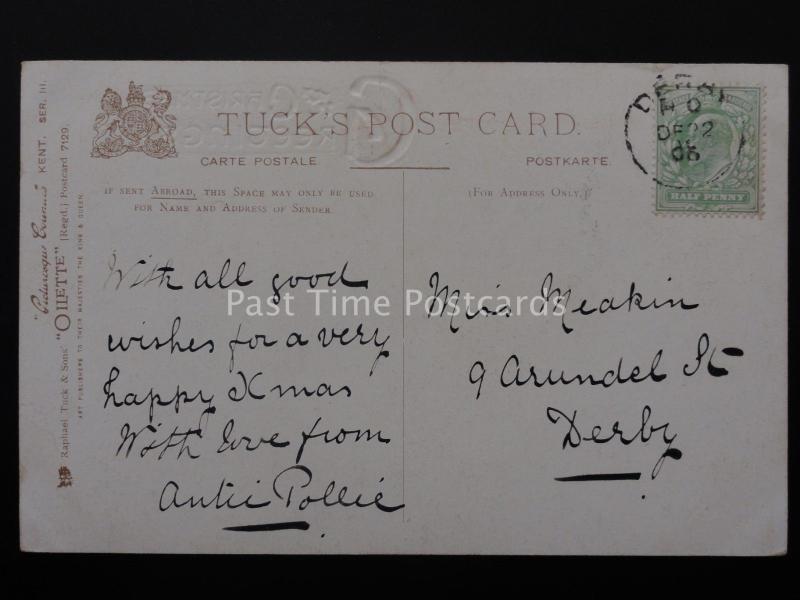 TUCK'S POST CARD.
CARTE POSTALE
POSTKARTE.
IF SENT ABROAD, THIS SPACE MAY ONLY BE USED
FOR NAME AND ADDRESS OF SENDER.
(FOR ADDRESS ONLY.)
"Picturesque Counties" KENT. SER. III.
Raphael Tuck & Sons' "OILETTE" [Regd.] Postcard 7129.
ART PUBLISHERS TO THEIR MAJESTIES THE KING & QUEEN.
DERBY
DE 22
HALF PENNY
With all good
wishes for a very
happy Xmas
With love from
Antii Pollie
Miss Meakin
9 Arundel St
Derby
Past Time Postcards